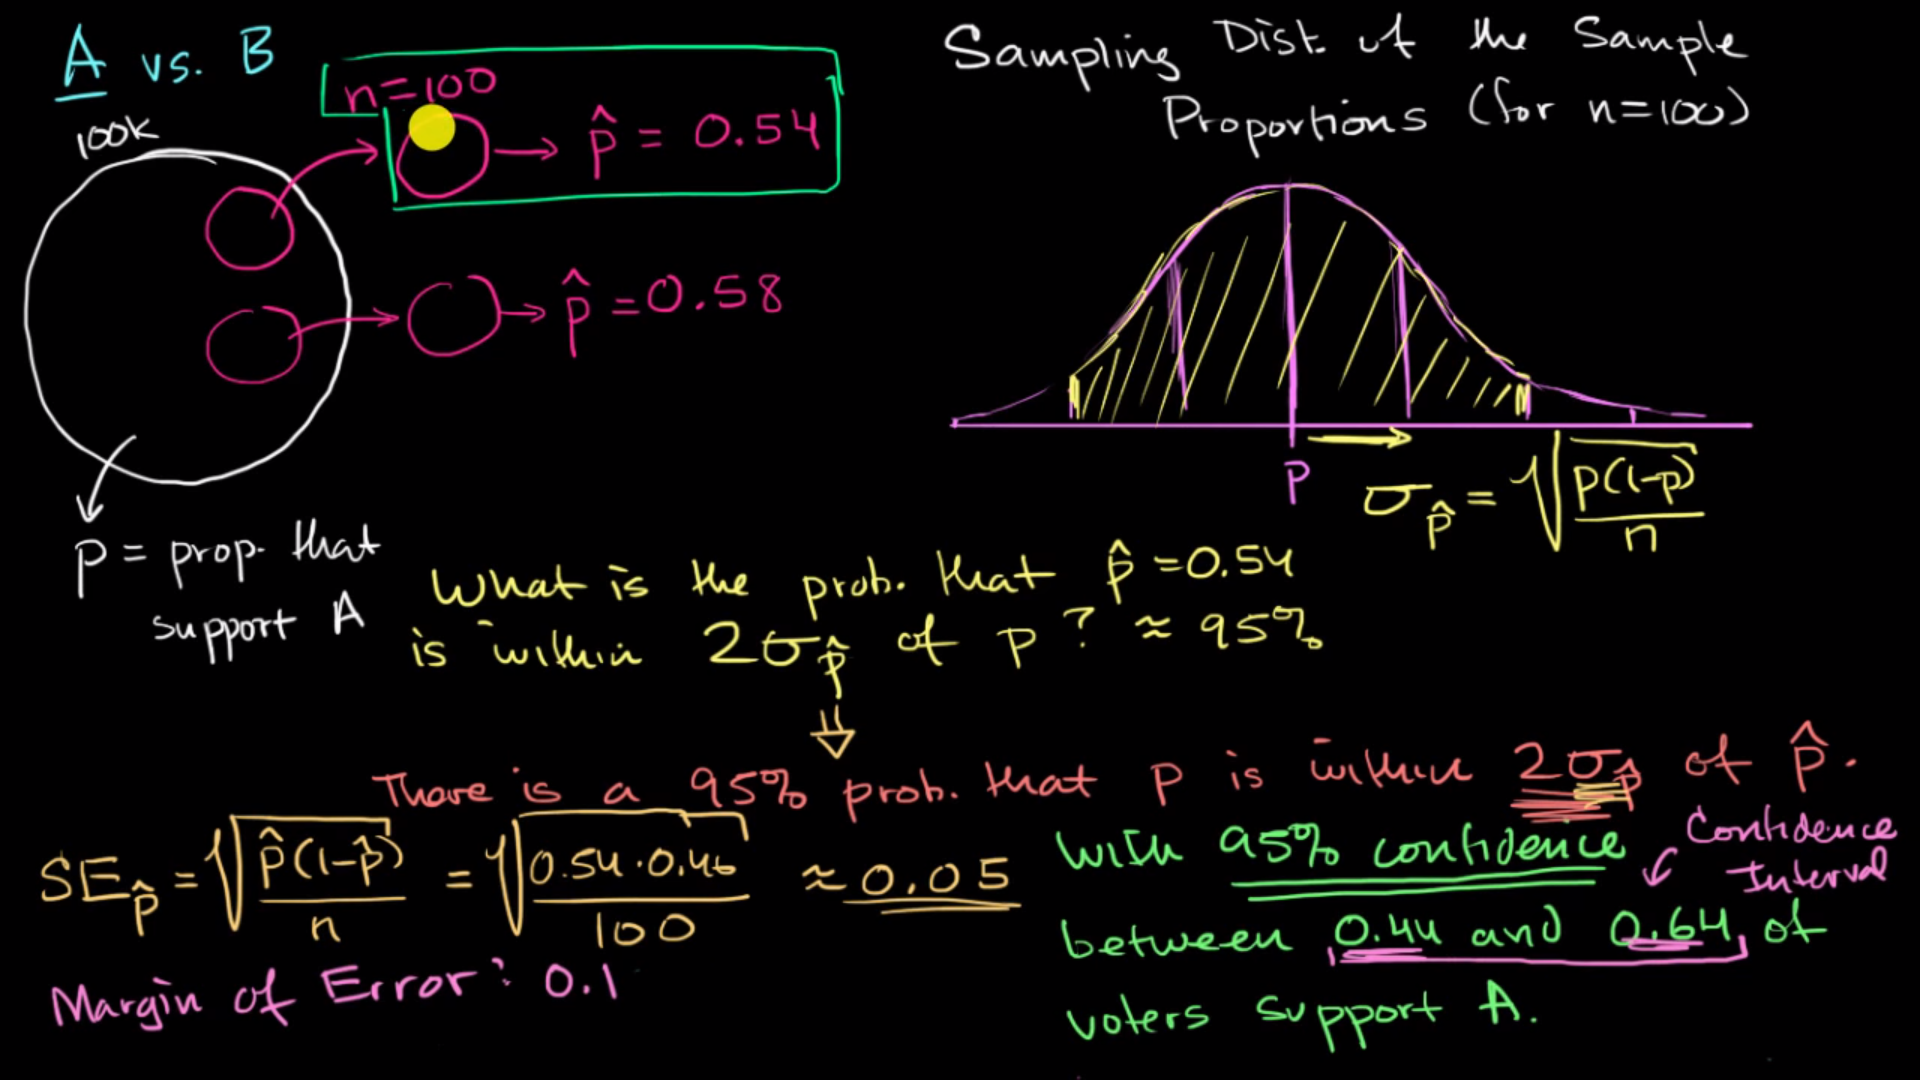 A vs. B
100K
n=100
p̂ = 0.54
p̂ = 0.58
p = prop. that
support A
Sampling Dist. of the Sample
Proportions (for n=100)
P
σp̂ = √(p(1-p)/n)
What is the prob. that p̂ = 0.54
is within 2σp̂ of p? ≈ 95%
There is a 95% prob. that p is within 2σp̂ of p̂.
SEp̂ = √(p̂(1-p̂)/n) = √(0.54·0.46/100) ≈ 0.05
Margin of Error: 0.1
With 95% confidence
between 0.44 and 0.64 of
voters support A.
Confidence
Interval